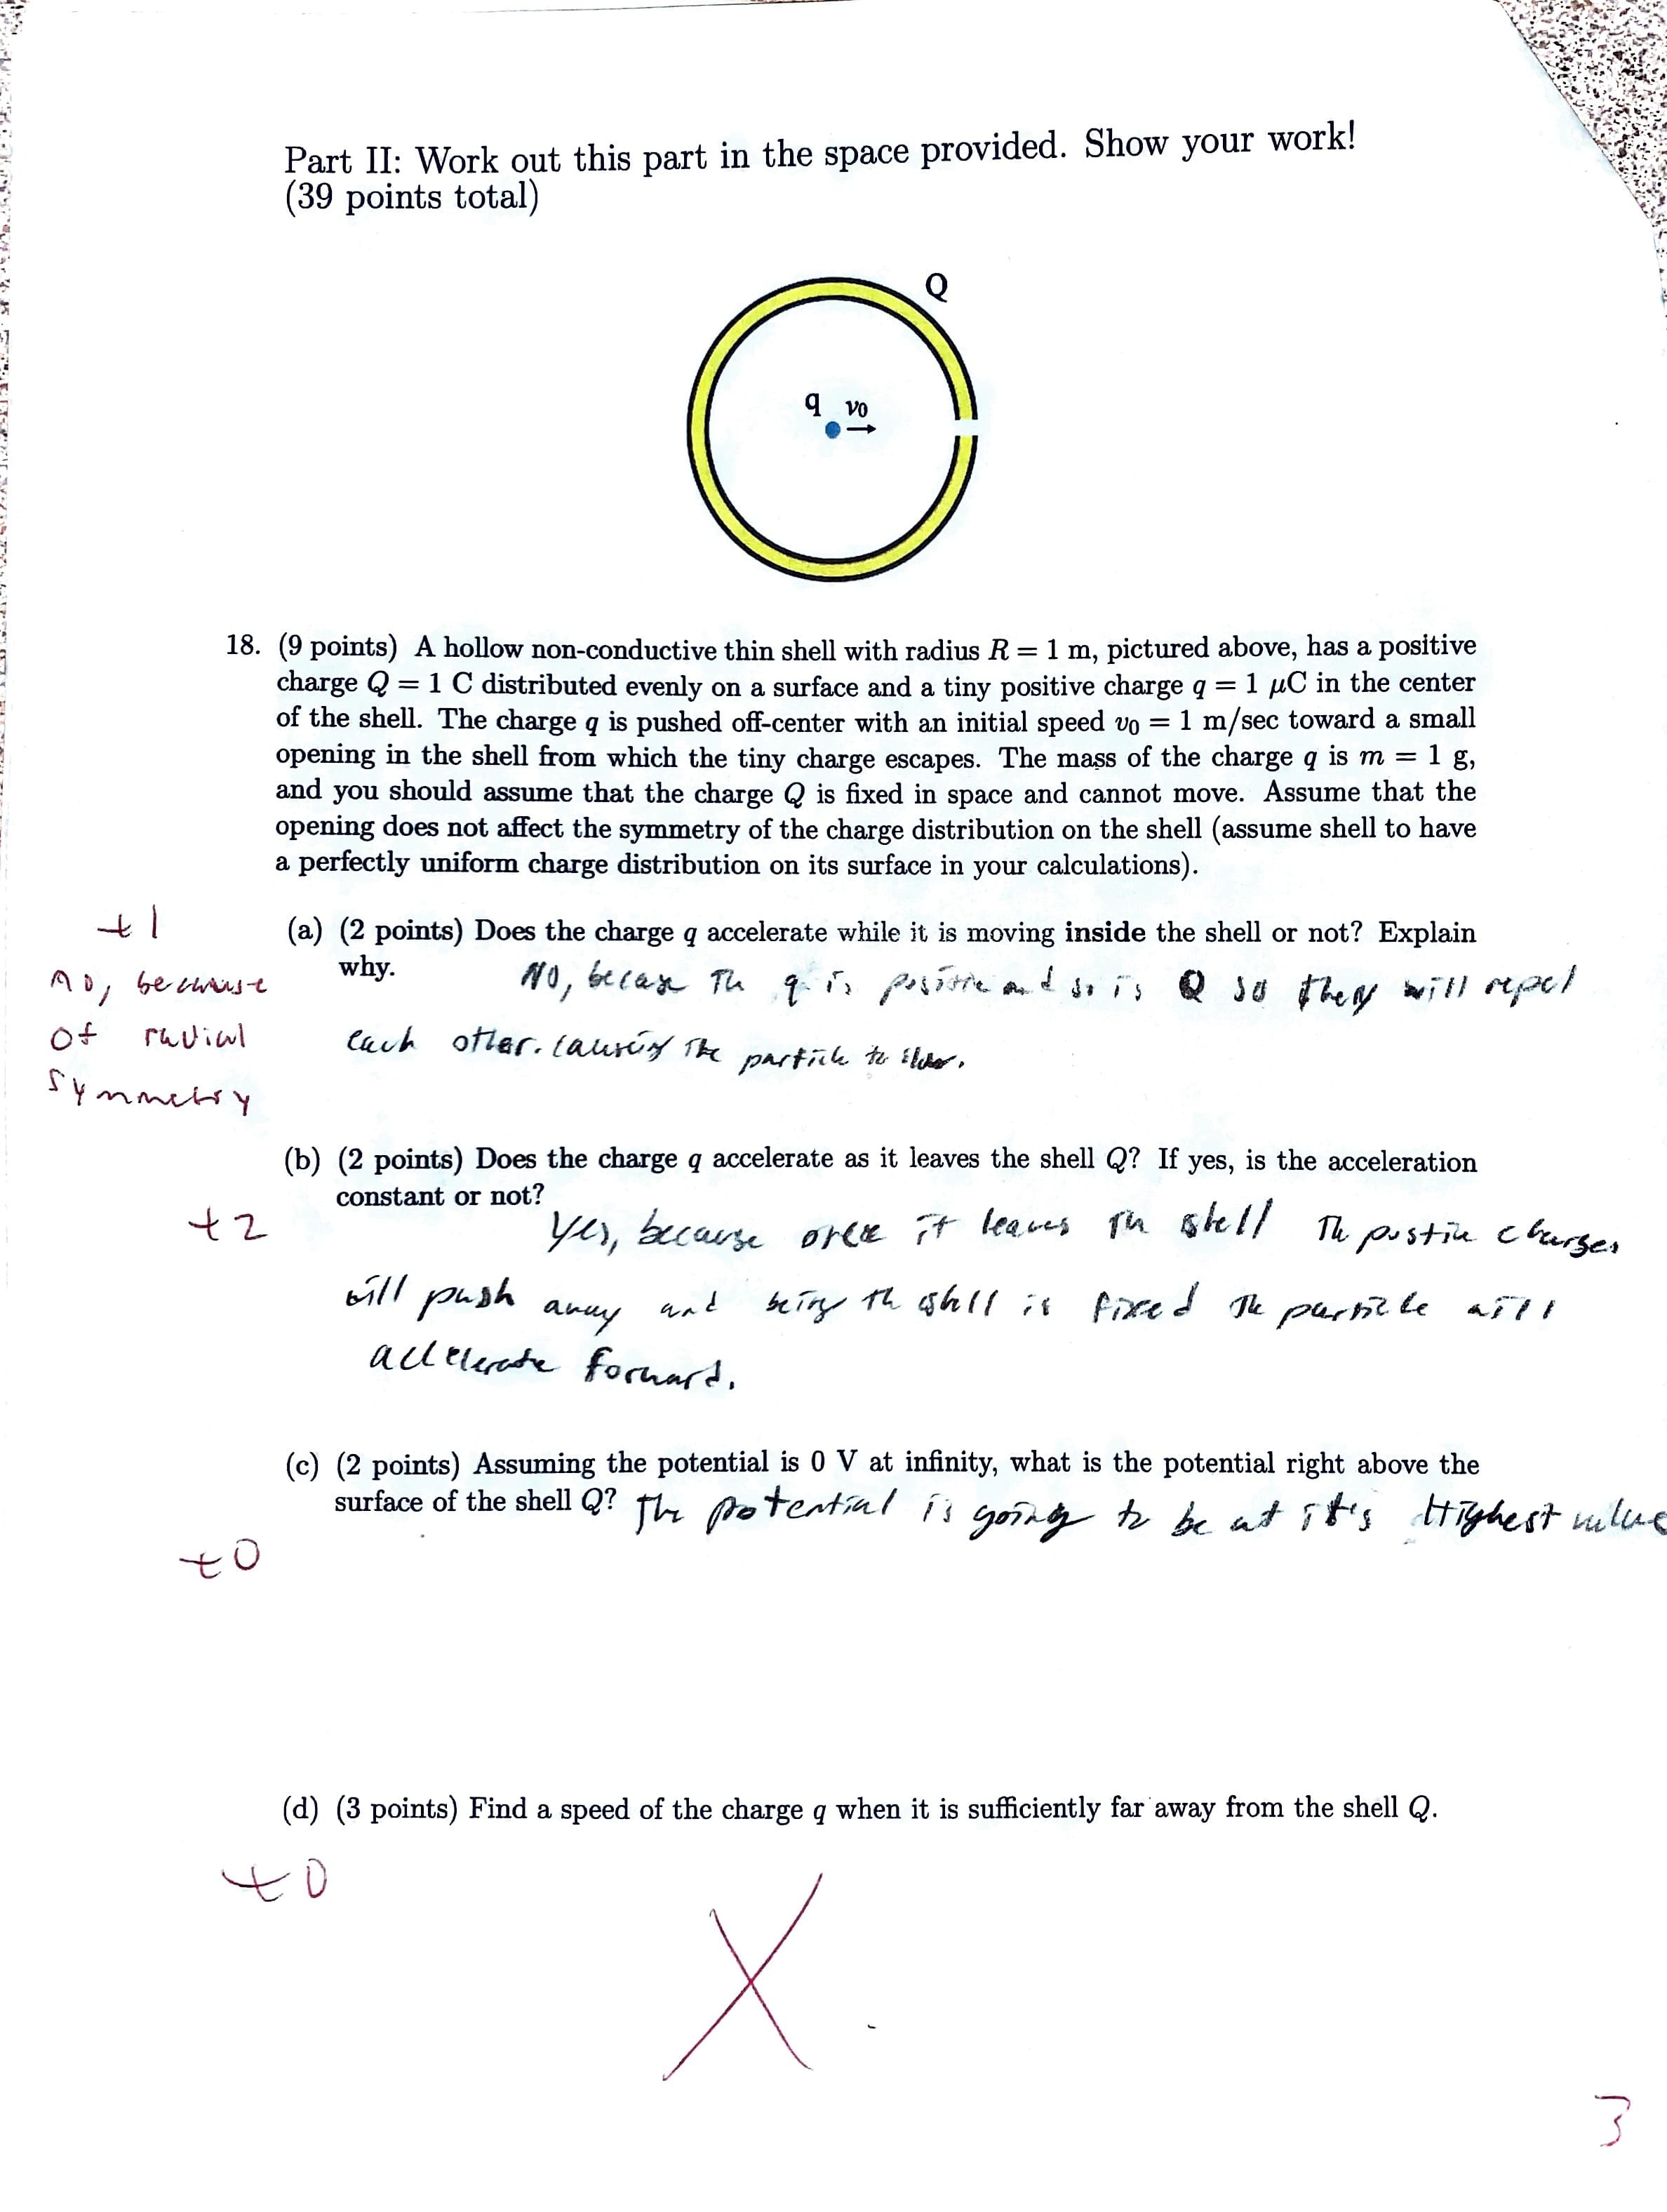 Part II: Work out this part in the space provided. Show your work!
(39 points total)
Q
q v0
18. (9 points) A hollow non-conductive thin shell with radius R = 1 m, pictured above, has a positive
charge Q = 1 C distributed evenly on a surface and a tiny positive charge q = 1 μC in the center
of the shell. The charge q is pushed off-center with an initial speed v₀ = 1 m/sec toward a small
opening in the shell from which the tiny charge escapes. The mass of the charge q is m = 1 g,
and you should assume that the charge Q is fixed in space and cannot move. Assume that the
opening does not affect the symmetry of the charge distribution on the shell (assume shell to have
a perfectly uniform charge distribution on its surface in your calculations).
+1
(a) (2 points) Does the charge q accelerate while it is moving inside the shell or not? Explain
why.
NO, because The q is positive and so is Q so they will repel
each other. causing The particle to
No, because
of radial
symmetry
(b) (2 points) Does the charge q accelerate as it leaves the shell Q? If yes, is the acceleration
constant or not?
+2
Yes, because once it leaves The shell The positive charges
will push away and being the shell is fixed The particle will
accelerate forward.
(c) (2 points) Assuming the potential is 0 V at infinity, what is the potential right above the
surface of the shell Q? The potential is going to be at it's Highest value
+0
(d) (3 points) Find a speed of the charge q when it is sufficiently far away from the shell Q.
+0
3